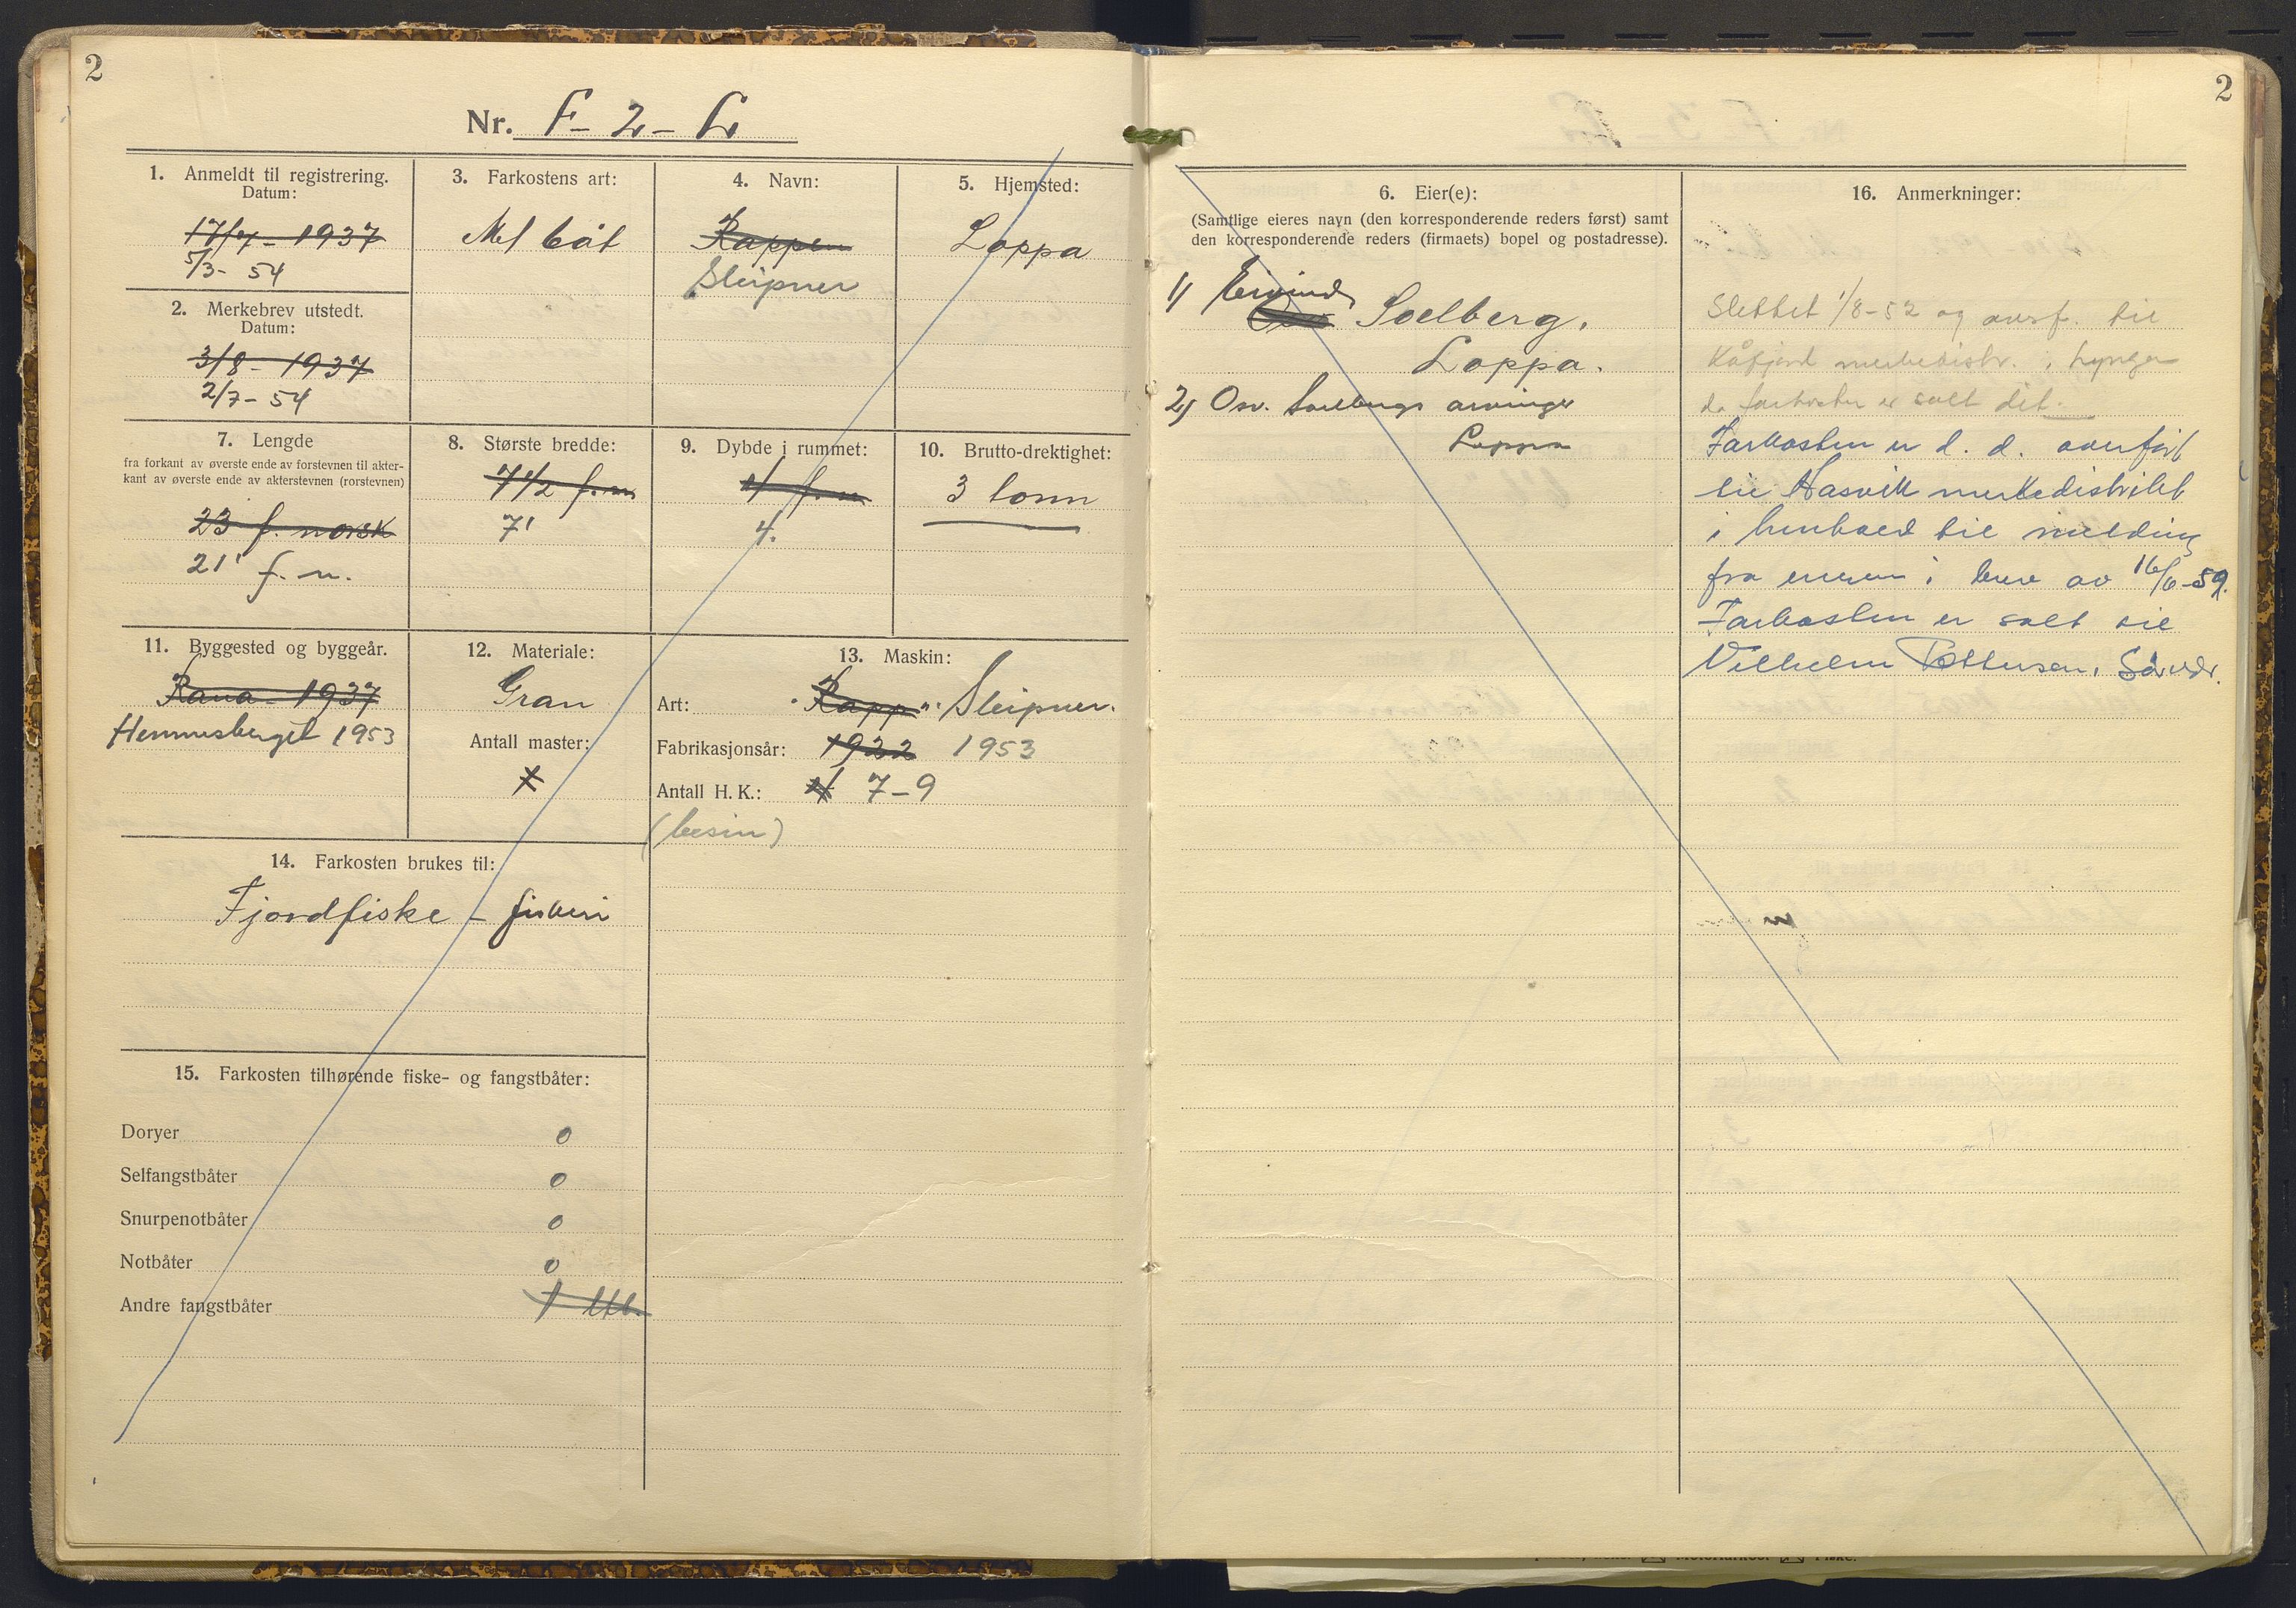 2
Nr. F-2-L
1. Anmeldt til registrering.
Datum:
17/7 - 1937
5/3- 54
2. Merkebrev utstedt.
Datum:
3/8 - 1937
2/7- 54
3. Farkostens art:
Mot båt
4. Navn:
Rappen
Sleipner
5. Hjemsted:
Loppa
7. Lengde
fra forkant av øverste ende av forstevnen til akter-
kant av øverste ende av akterstevnen (rorstevnen)
23 f. norsk
21' f. n.
8. Største bredde:
7 1/2 f. n
7'
9. Dybde i rummet:
f. n
4.
10. Brutto-drektighet:
3 tonn
11. Byggested og byggeår.
Rana - 1937
Hemnesberget 1953
12. Materiale:
Gran
Antall master:
13. Maskin:
Art: "Rapp". Sleipner.
Fabrikasjonsår: 1932 1953
Antall H. K.: 4 7-9
(besin)
14. Farkosten brukes til:
Fjordfiske - fiskeri
15. Farkosten tilhørende fiske- og fangstbåter:
Doryer 0
Selfangstbåter 0
Snurpenotbåter 0
Notbåter 0
Andre fangstbåter 1
2
6. Eier(e):
(Samtlige eieres navn (den korresponderende reders først) samt
den korresponderende reders (firmaets) bopel og postadresse).
1) Eivind Soelberg,
Loppa.
2) Osv. Soelbergs arvinger
Loppa
16. Anmerkninger:
Slettet 1/8-52 og overf. til
Kåfjord merkedistr. i Lyngen
da farkosten er solt dit.
Farkosten er d. d. overført
til Hasvik merkedistrikt
i henhold til melding
fra eieren i brev av 16/6-59.
Farkosten er solt til
Vilhelm Pettersen, Sørvær.